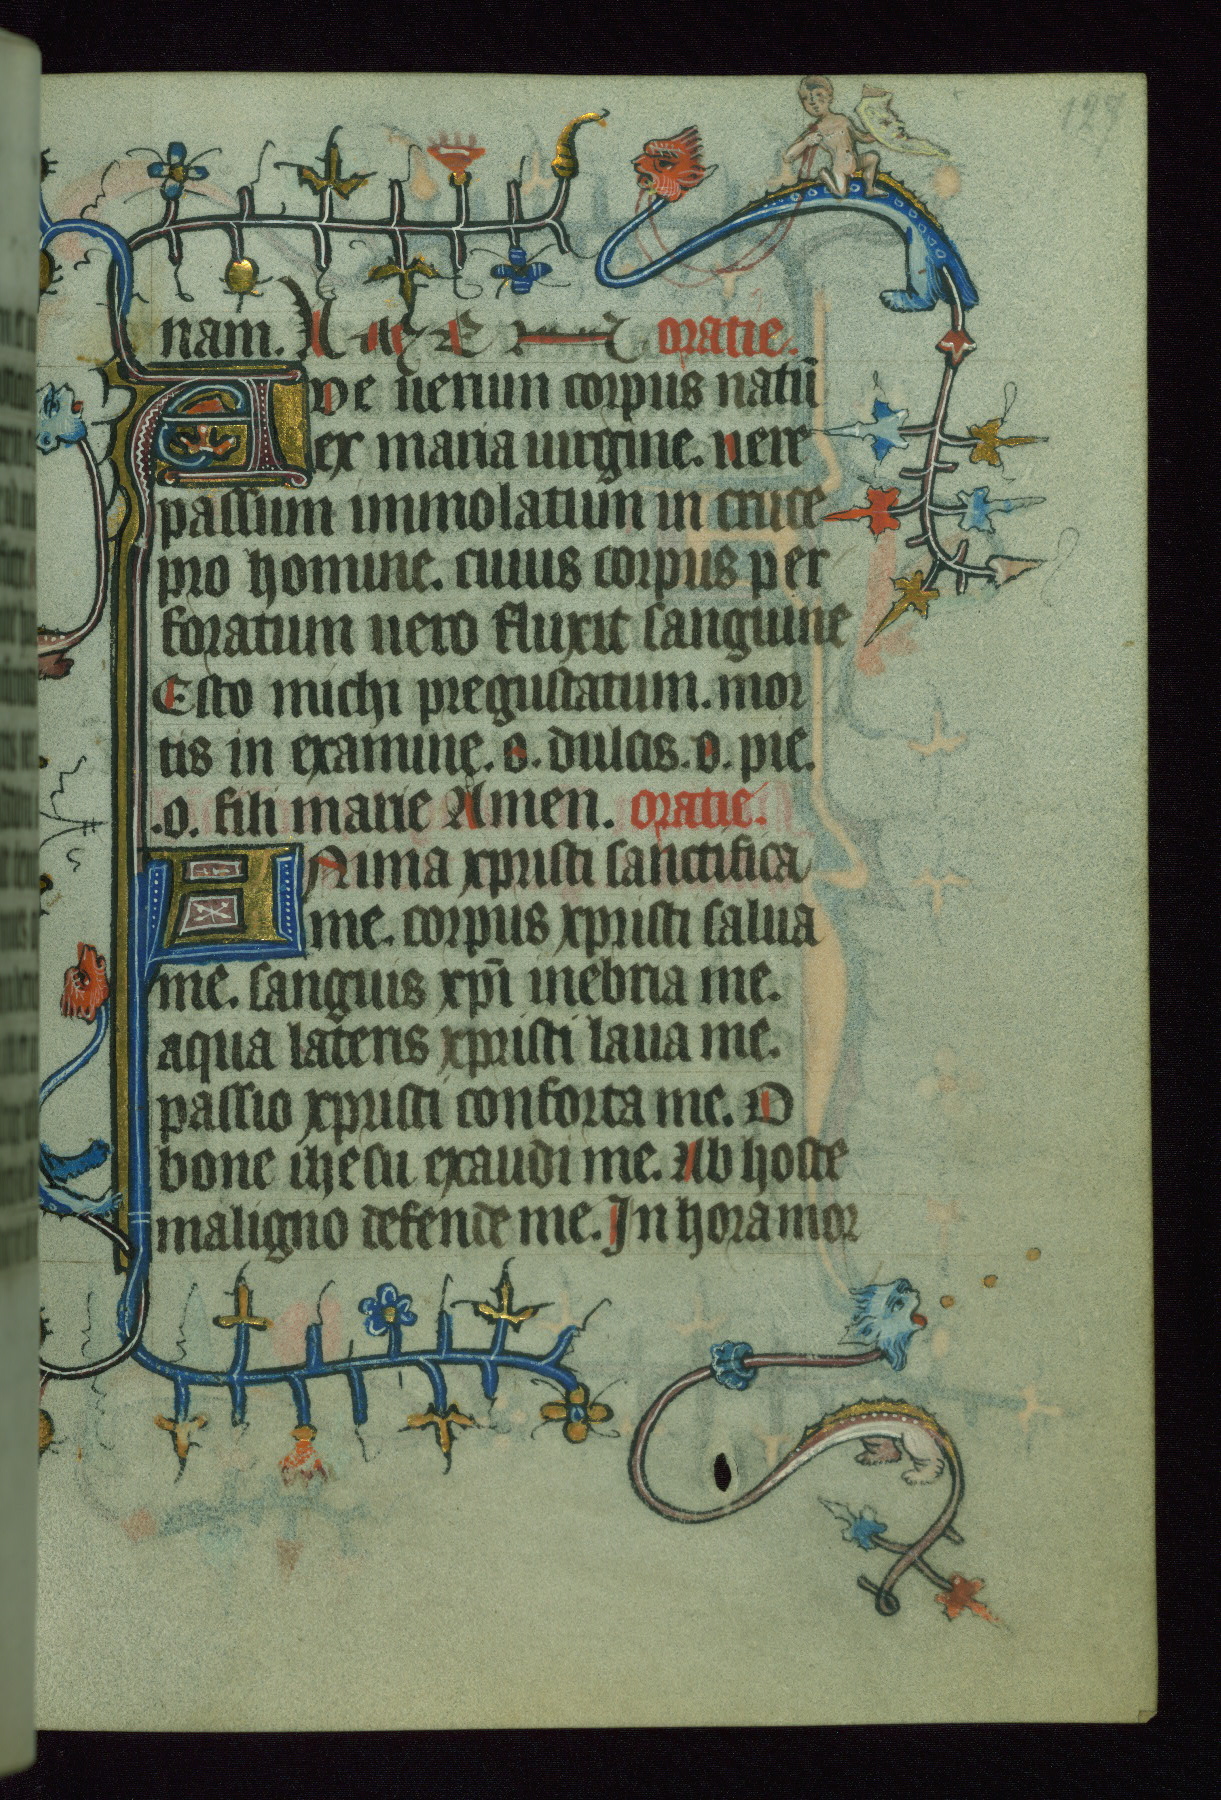 128
nam. oratie.
Ave uerum corpus natū
ex maria uirgine. uere
passum immolatum in cruce
pro homine. cuius corpus per
foratum uero fluxit sanguine
Esto michi pregustatum. mor
tis in examine. o. dulcis. o. pie.
.o. fili marie Amen. oratie.
Anima xpristi sanctifica
me. corpus xpristi salua
me. sanguis xp̄i inebria me.
aqua lateris xpristi laua me.
passio xpristi conforta me. O
bone ihesu exaudi me. Ab hoste
maligno defende me. In hora mor